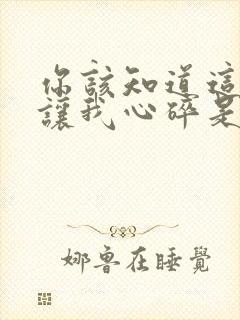 你該知道這
讓我心碎是
娜魯在睡覺